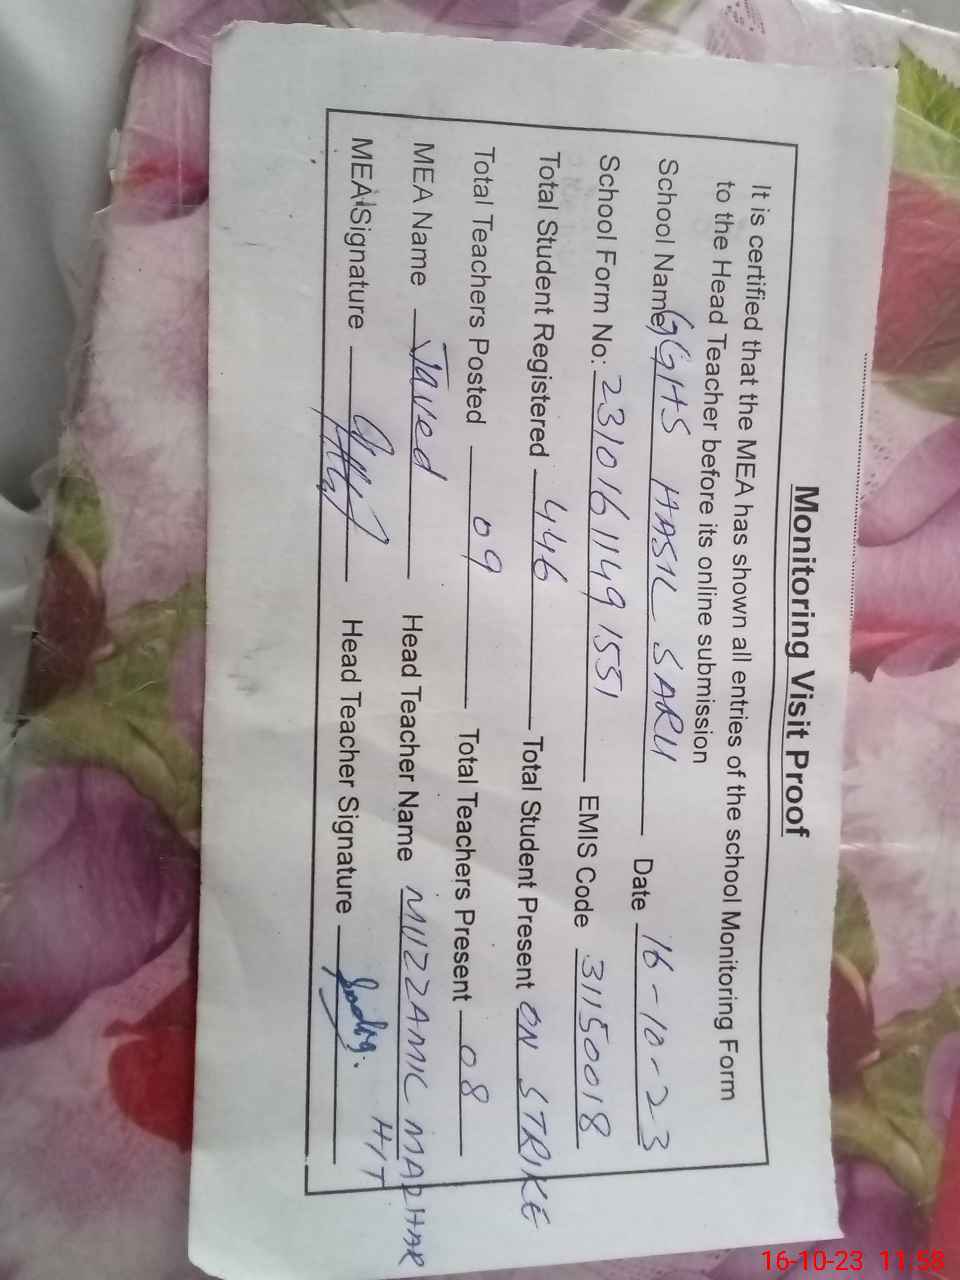 Monitoring Visit Proof
It is certified that the MEA has shown all entries of the school Monitoring Form
to the Head Teacher before its online submission
School Name GGHS HASIL SARU Date 16-10-23
School Form No: 23101611491551 EMIS Code 31150018
Total Student Registered 446 Total Student Present ON STRIKE
Total Teachers Posted 09 Total Teachers Present 08
MEA Name Javed Head Teacher Name MUZZAMIL MAZHAR
H/T
MEA Signature Head Teacher Signature
16-10-23 11:58